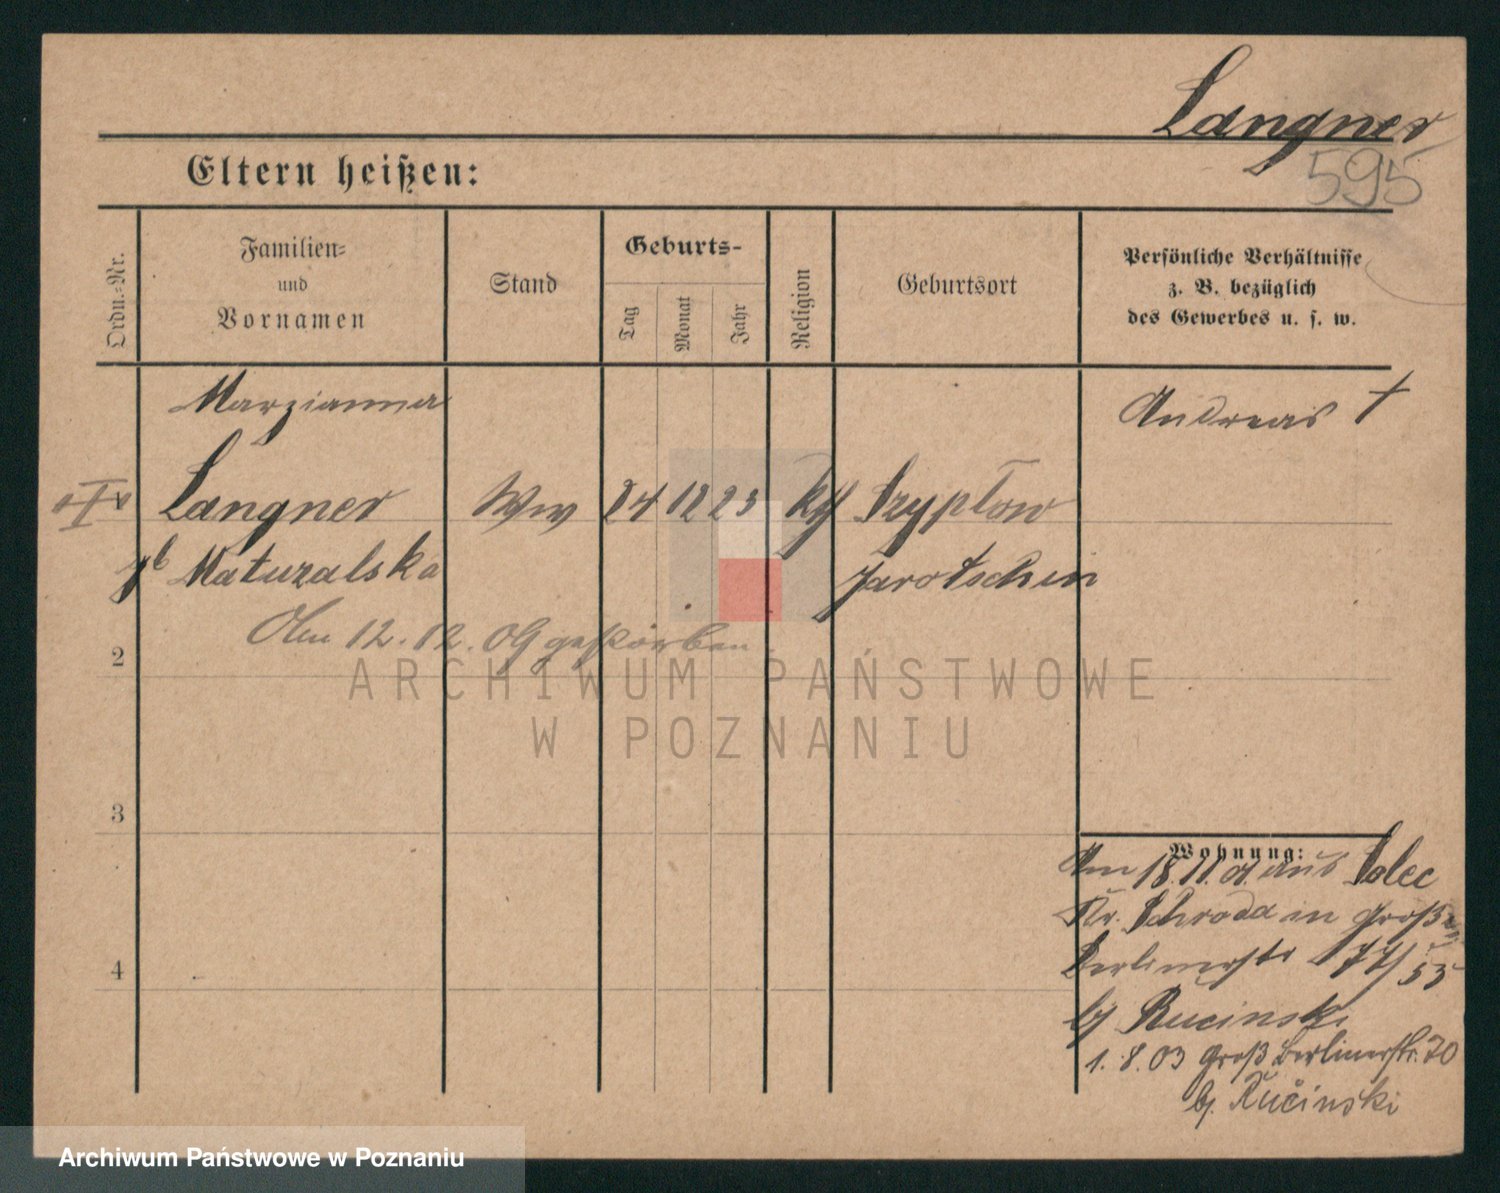 Langner
595
Eltern heißen:
Ordn.-Nr.
Familien- und Vornamen
Stand
Geburts-
Tag
Monat
Jahr
Religion
Geburtsort
Persönliche Verhältnisse
z. B. bezüglich
des Gewerbes u. s. w.
Marzianna
Andreas †
Langner Ww 24 12 23 kth Szyplow
gb Matuzalska Jarotschin
Am 12.12.09 gestorben.
2
3
4
Wohnung:
Am 18.11.01 aus Solec
Kr. Schroda in Große
Berlinerstr
bj Rucinski
1.8.03 Groß Berlinerstr. 70
bj. Rucinski
ARCHIWUM PAŃSTWOWE
W POZNANIU
Archiwum Państwowe w Poznaniu